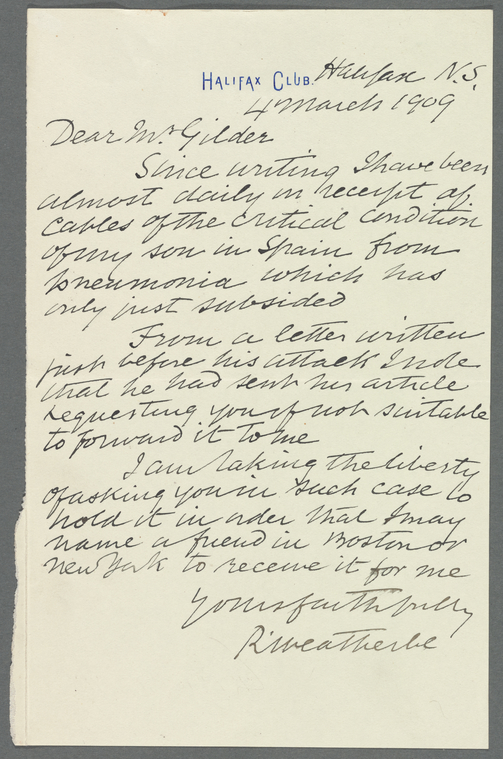 HALIFAX CLUB. Halifax N.S.
4 March 1909
Dear Mr Gilder
Since writing I have been
almost daily in receipt of
cables of the critical condition
of my son in Spain from
pneumonia which has
only just subsided
From a letter written
just before his attack I note
that he had sent his article
requesting you if not suitable
to forward it to me
I am taking the liberty
of asking you in such case to
hold it in order that I may
name a friend in Boston or
New York to receive it for me
Yours faithfully
R Weatherbe